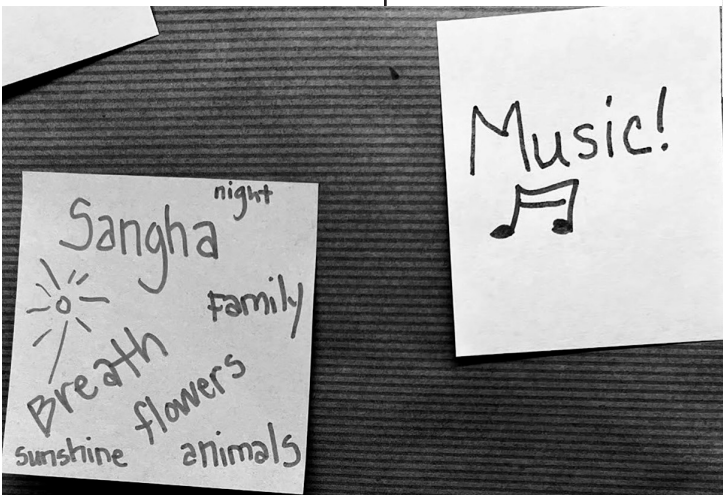 night
Sangha
Family
Breath
flowers
sunshine
animals
Music!